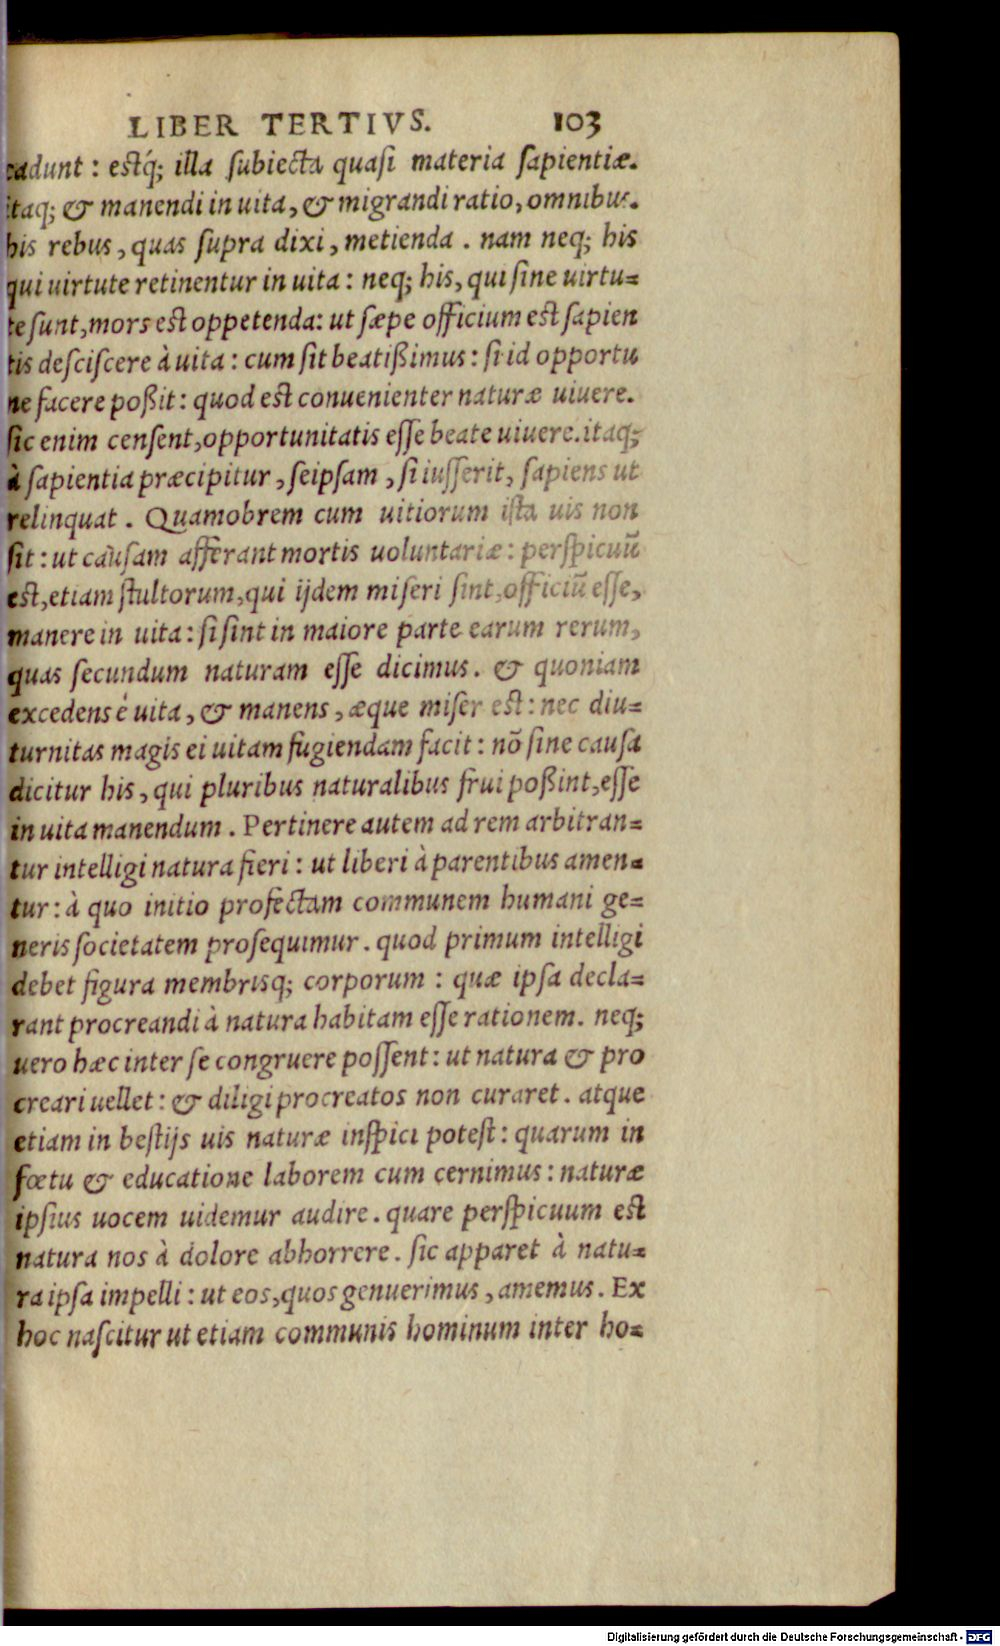 LIBER TERTIVS. 103
cadunt : estq́; illa ſubiecta quaſi materia ſapientiæ.
itaq; & manendi in uita, & migrandi ratio, omnibus.
his rebus, quas ſupra dixi, metienda . nam neq; his
qui uirtute retinentur in uita : neq; his, qui ſine uirtu=
te ſunt, mors est oppetenda: ut ſæpe officium est ſapien
tis deſciſcere à uita : cum ſit beatißimus : ſi id opportu
ne facere poßit : quod est conuenienter naturæ uiuere.
ſic enim cenſent, opportunitatis eſſe beate uiuere. itaq;
à ſapientia præcipitur, ſeipſam, ſi iuſſerit, ſapiens ut
relinquat . Quamobrem cum uitiorum iſta uis non
ſit : ut cauſam afferant mortis uoluntariæ : perſpicuũ
est, etiam ſtultorum, qui ijdem miſeri ſint, officiũ eſſe,
manere in uita : ſi ſint in maiore parte earum rerum,
quas ſecundum naturam eſſe dicimus . & quoniam
excedens è uita, & manens, æque miſer est : nec diu=
turnitas magis ei uitam fugiendam facit : nõ ſine cauſa
dicitur his, qui pluribus naturalibus frui poßint, eſſe
in uita manendum . Pertinere autem ad rem arbitran=
tur intelligi natura fieri : ut liberi à parentibus amen=
tur : à quo initio profectam communem humani ge=
neris ſocietatem proſequimur . quod primum intelligi
debet figura membrisq; corporum : quæ ipſa decla=
rant procreandi à natura habitam eſſe rationem. neq;
uero hæc inter ſe congruere poſſent : ut natura & pro
creari uellet : & diligi procreatos non curaret . atque
etiam in beſtijs uis naturæ inſpici poteſt : quarum in
fœtu & educatione laborem cum cernimus : naturæ
ipſius uocem uidemur audire . quare perſpicuum est
natura nos à dolore abhorrere . ſic apparet à natu=
ra ipſa impelli : ut eos, quos genuerimus, amemus. Ex
hoc naſcitur ut etiam communis hominum inter ho=
Digitalisierung gefördert durch die Deutsche Forschungsgemeinschaft - DFG